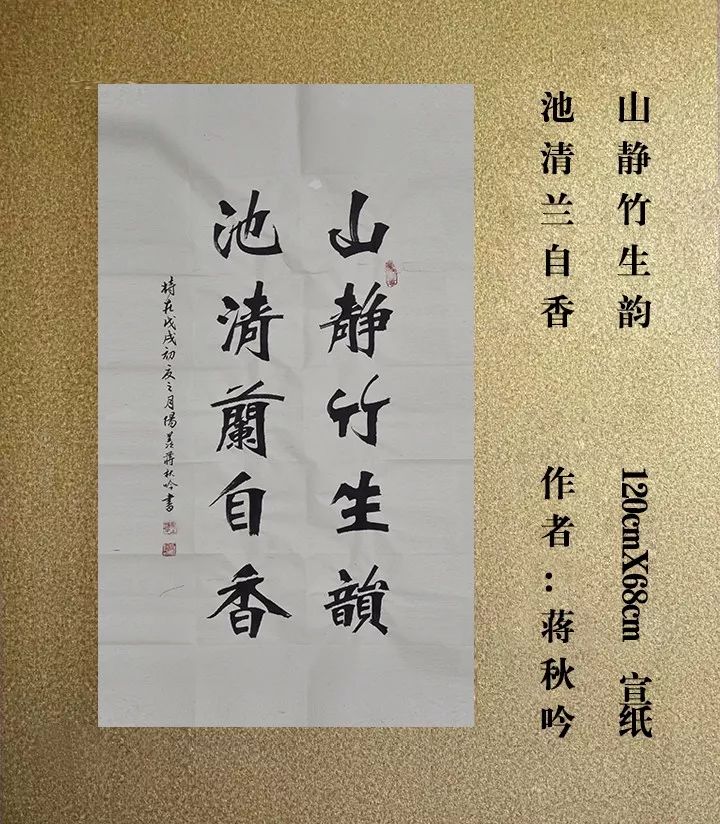 山静竹生韵
120cmX68cm 宣纸
池清兰自香
作者：蒋秋吟
山静竹生韻
池清蘭自香
時在戊戌初夏之月陽羡蔣秋吟書